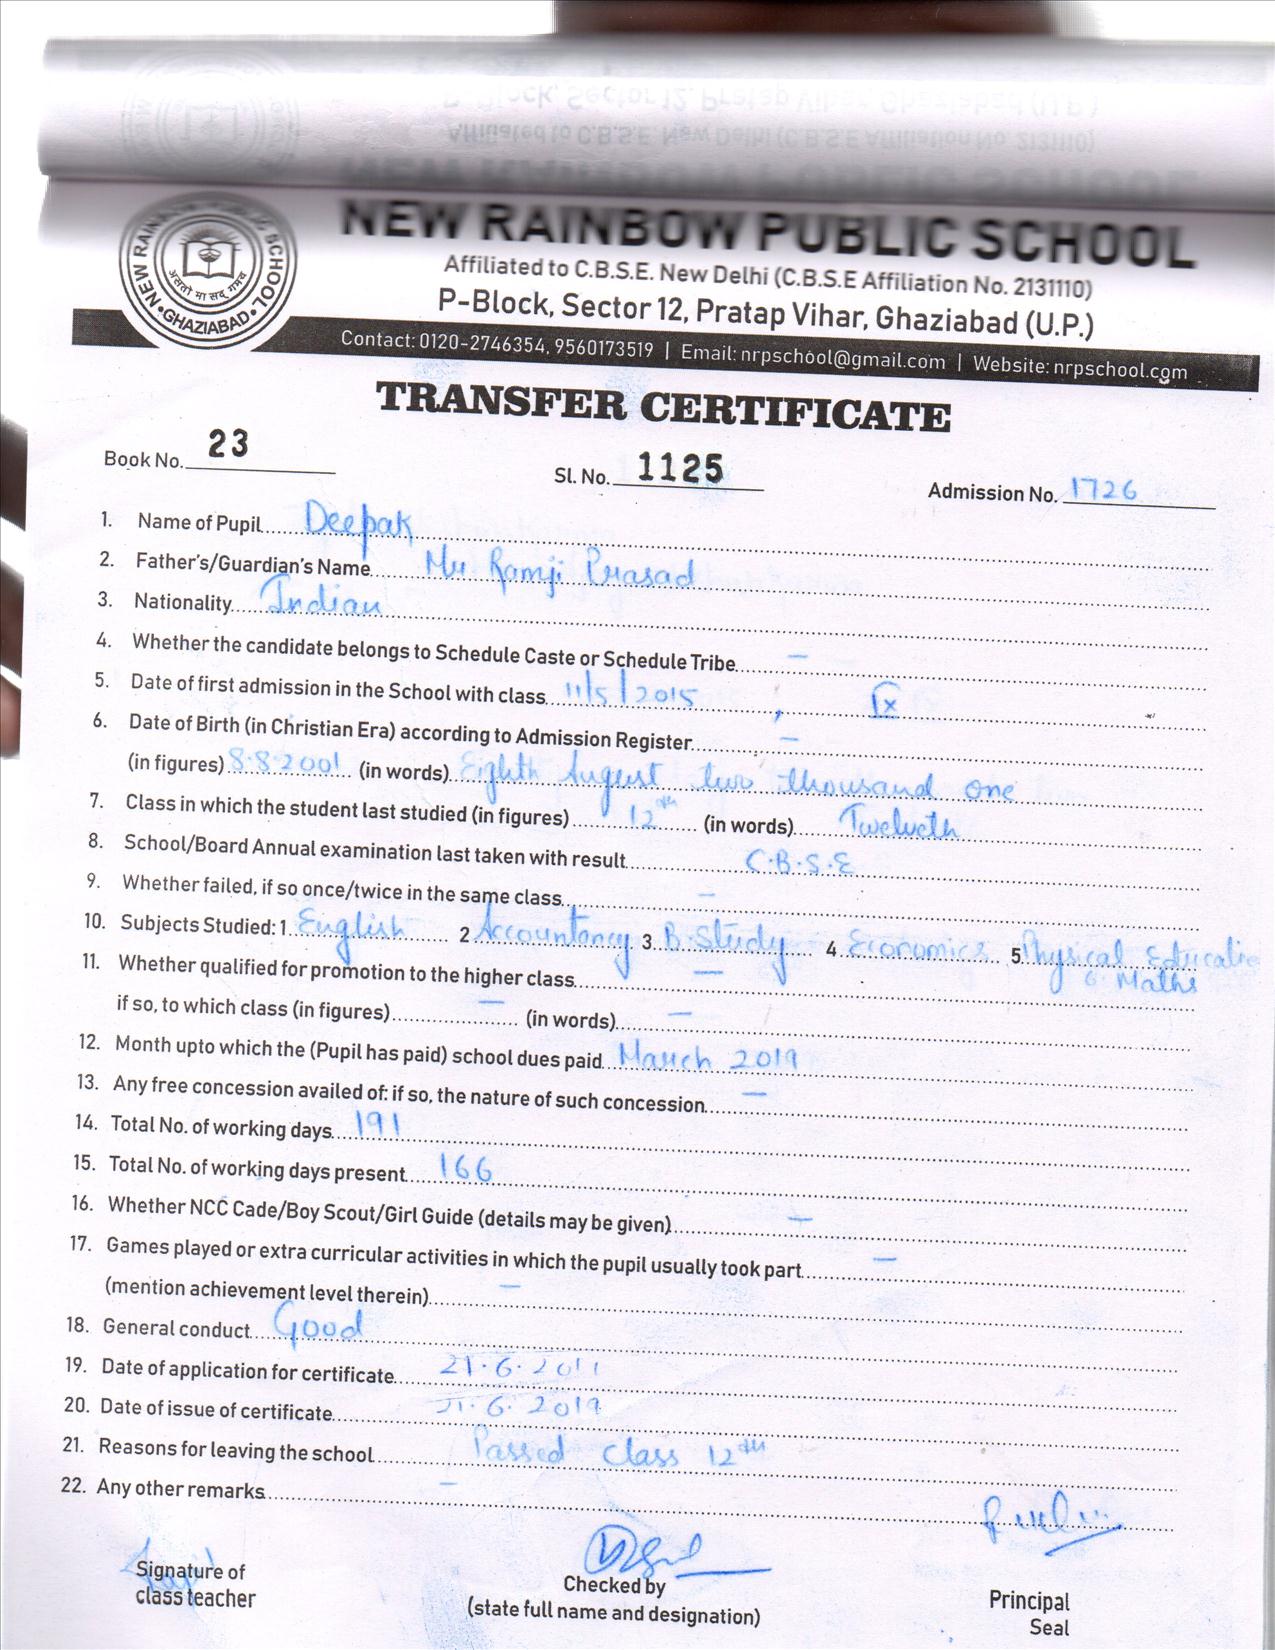 NEW RAINBOW PUBLIC SCHOOL
Affiliated to C.B.S.E. New Delhi (C.B.S.E Affiliation No. 2131110)
P-Block, Sector 12, Pratap Vihar, Ghaziabad (U.P.)
NEW RAINBOW PUBLIC SCHOOL
असतो मा सद् गमय
• GHAZIABAD •
Contact: 0120-2746354, 9560173519 | Email: nrpschool@gmail.com | Website: nrpschool.com
TRANSFER CERTIFICATE
Book No. 23 Sl. No. 1125 Admission No. 1726
1. Name of Pupil Deepak
2. Father's/Guardian's Name Mr Ramji Prasad
3. Nationality Indian
4. Whether the candidate belongs to Schedule Caste or Schedule Tribe —
5. Date of first admission in the School with class 11/5/2015, IX
6. Date of Birth (in Christian Era) according to Admission Register —
(in figures) 8.8.2001 (in words) Eighth August two thousand one
7. Class in which the student last studied (in figures) 12th (in words) Twelveth
8. School/Board Annual examination last taken with result C.B.S.E
9. Whether failed, if so once/twice in the same class —
10. Subjects Studied: 1. English 2 Accountancy 3. B.Study 4 Economics 5 Physical Educatio
6. Maths
11. Whether qualified for promotion to the higher class —
if so, to which class (in figures) — (in words) —
12. Month upto which the (Pupil has paid) school dues paid March 2019
13. Any free concession availed of: if so, the nature of such concession —
14. Total No. of working days 191
15. Total No. of working days present 166
16. Whether NCC Cade/Boy Scout/Girl Guide (details may be given) —
17. Games played or extra curricular activities in which the pupil usually took part —
(mention achievement level therein) —
18. General conduct Good
19. Date of application for certificate
20. Date of issue of certificate
21. Reasons for leaving the school Passed class 12th
22. Any other remarks —
Signature of
class teacher
Checked by
(state full name and designation)
Principal
Seal